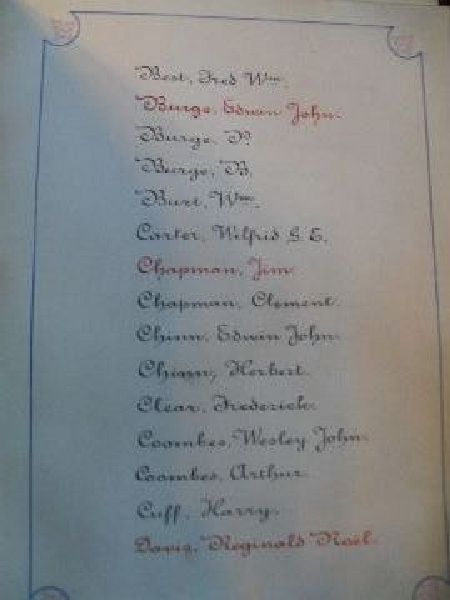 Best, Fred Wm.
Burge, Edwin John.
Burge, P.
Burge, B.
Burt, Wm.
Carter, Wilfrid G. E.
Chapman, Jim
Chapman, Clement.
Chinn, Edwin John.
Chinn, Herbert.
Clear, Frederick.
Coombes, Wesley John.
Coombes, Arthur.
Cuff, Harry.
Davis, Reginald Noël.